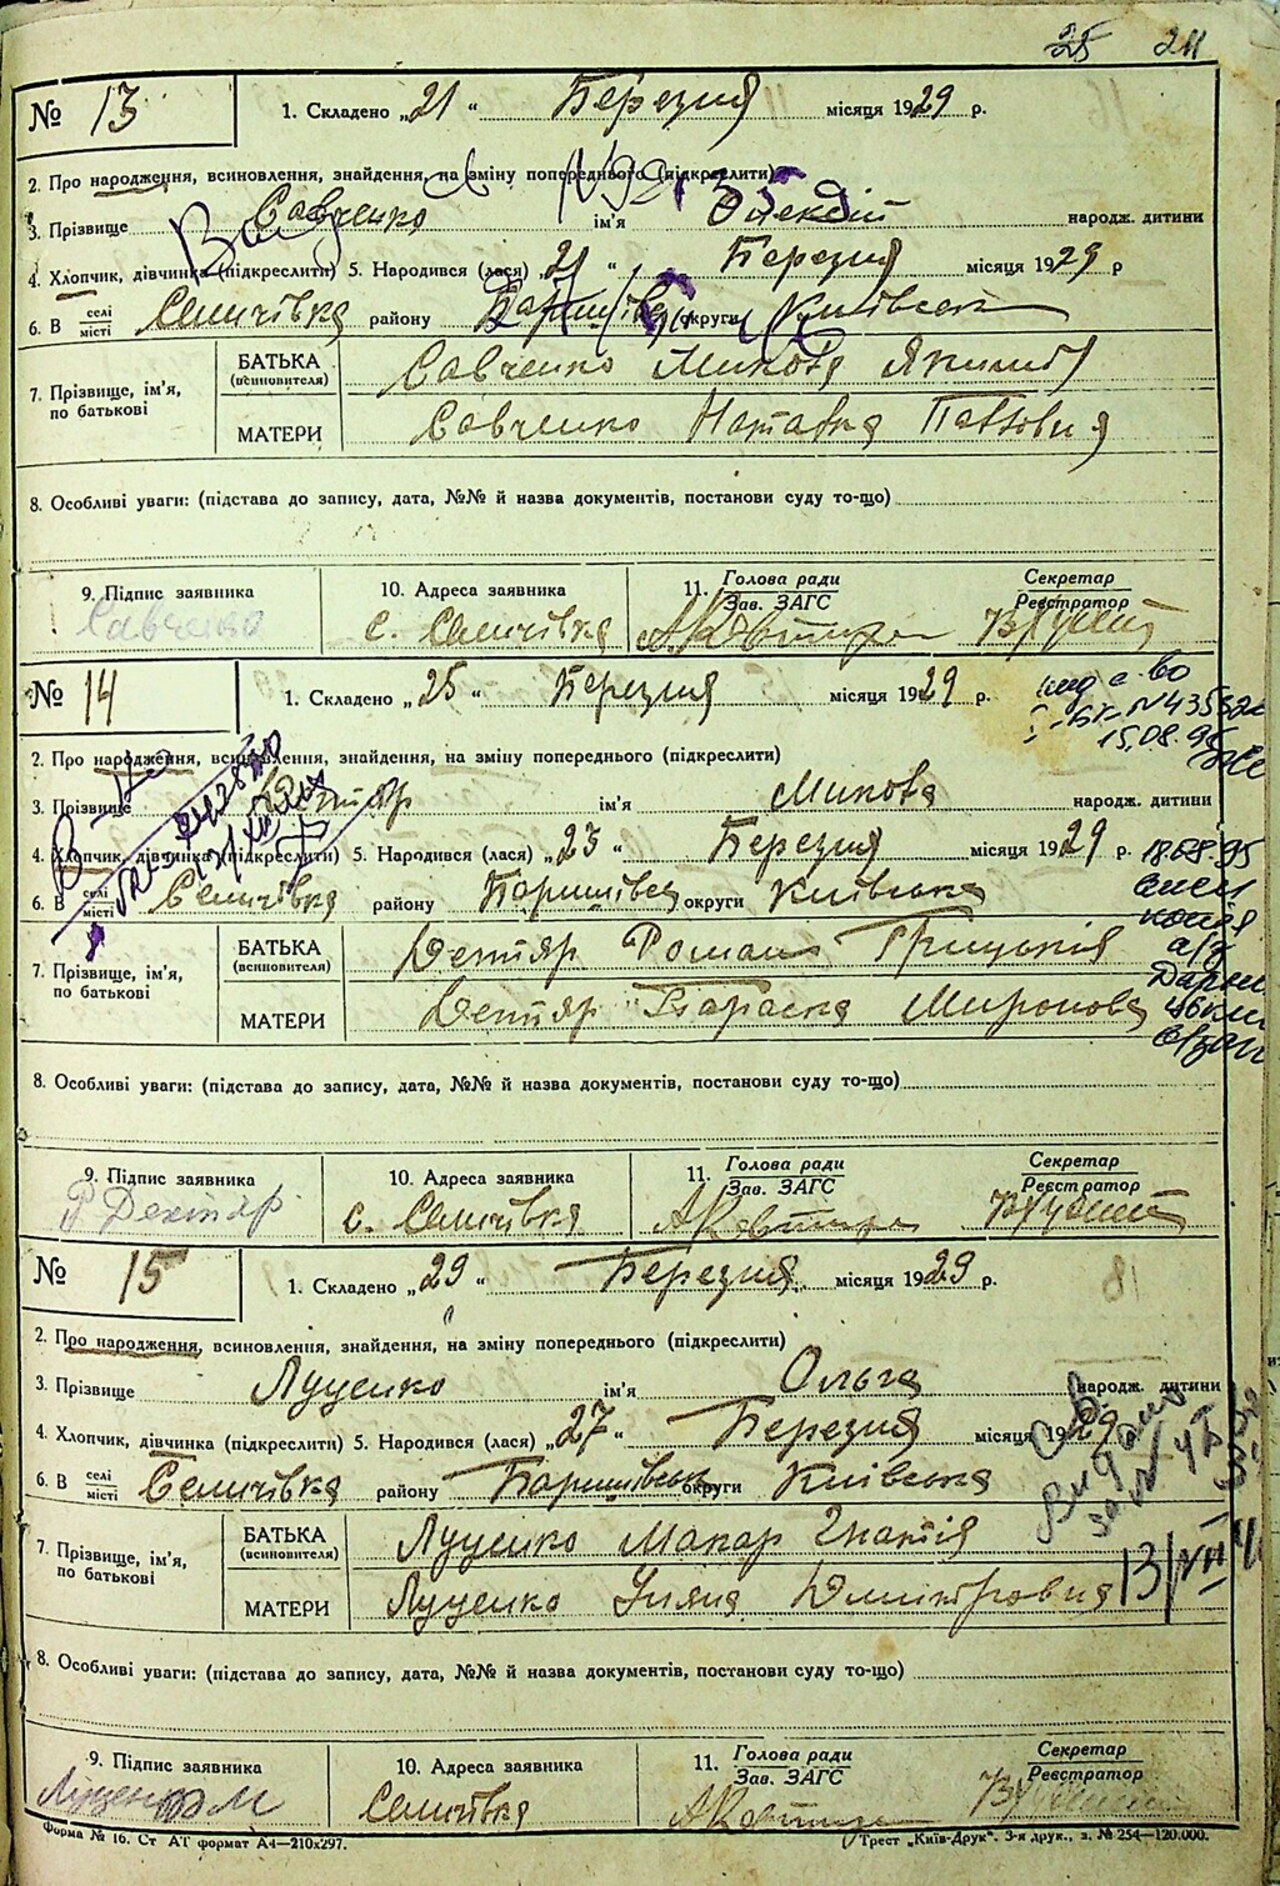 25 211
№ 13 1. Складено „21“ Березня місяця 1929 р.
2. Про народження, всиновлення, знайдення, на зміну попереднього (підкреслити)
3. Прізвище Савченко ім'я Олексій народж. дитини
4. Хлопчик, дівчинка (підкреслити) 5. Народився (лася) „21“ Березня місяця 1929 р
6. В селі місті Селичівка району Баришівськ округи Київськ
7. Прізвище, ім'я, по батькові
БАТЬКА (всиновителя) Савченко Микола Якимів
МАТЕРИ Савченко Наталка Павловня
8. Особливі уваги: (підстава до запису, дата, №№ й назва документів, постанови суду то-що)
9. Підпис заявника 10. Адреса заявника 11. Голова ради Зав. ЗАГС Секретар Реєстратор
Савченко с. Селичівка
№ 14 1. Складено „25“ Березня місяця 1929 р.
15.08.95
2. Про народження, всиновлення, знайдення, на зміну попереднього (підкреслити)
3. Прізвище Дехтяр ім'я Микола народж. дитини
4. Хлопчик, дівчинка (підкреслити) 5. Народився (лася) „23“ Березня місяця 1929 р. 18.08.95
6. В селі місті Селичівка району Баришівськ округи Київська
копія
а/з
7. Прізвище, ім'я, по батькові
БАТЬКА (всиновителя) Дехтяр Роман Грицьків
МАТЕРИ Дехтяр Параска Миронова
8. Особливі уваги: (підстава до запису, дата, №№ й назва документів, постанови суду то-що)
9. Підпис заявника 10. Адреса заявника 11. Голова ради Зав. ЗАГС Секретар Реєстратор
Р Дехтяр с. Селичівка
№ 15 1. Складено „29“ Березня місяця 1929 р.
2. Про народження, всиновлення, знайдення, на зміну попереднього (підкреслити)
3. Прізвище Луценко ім'я Ольга народж. дитини
4. Хлопчик, дівчинка (підкреслити) 5. Народився (лася) „27“ Березня місяця 1929
6. В селі місті Селичівка району Баришівськ округи Київська
7. Прізвище, ім'я, по батькові
БАТЬКА (всиновителя) Луценко Макар Гнатів
МАТЕРИ Луценко Уляна Дмитровня 13/VII
8. Особливі уваги: (підстава до запису, дата, №№ й назва документів, постанови суду то-що)
9. Підпис заявника 10. Адреса заявника 11. Голова ради Зав. ЗАГС Секретар Реєстратор
Луценко М Селичівка
Форма № 16. Ст АТ формат А4—210х297. Трест „Київ-Друк“. 3-я друк., з. № 254—120.000.